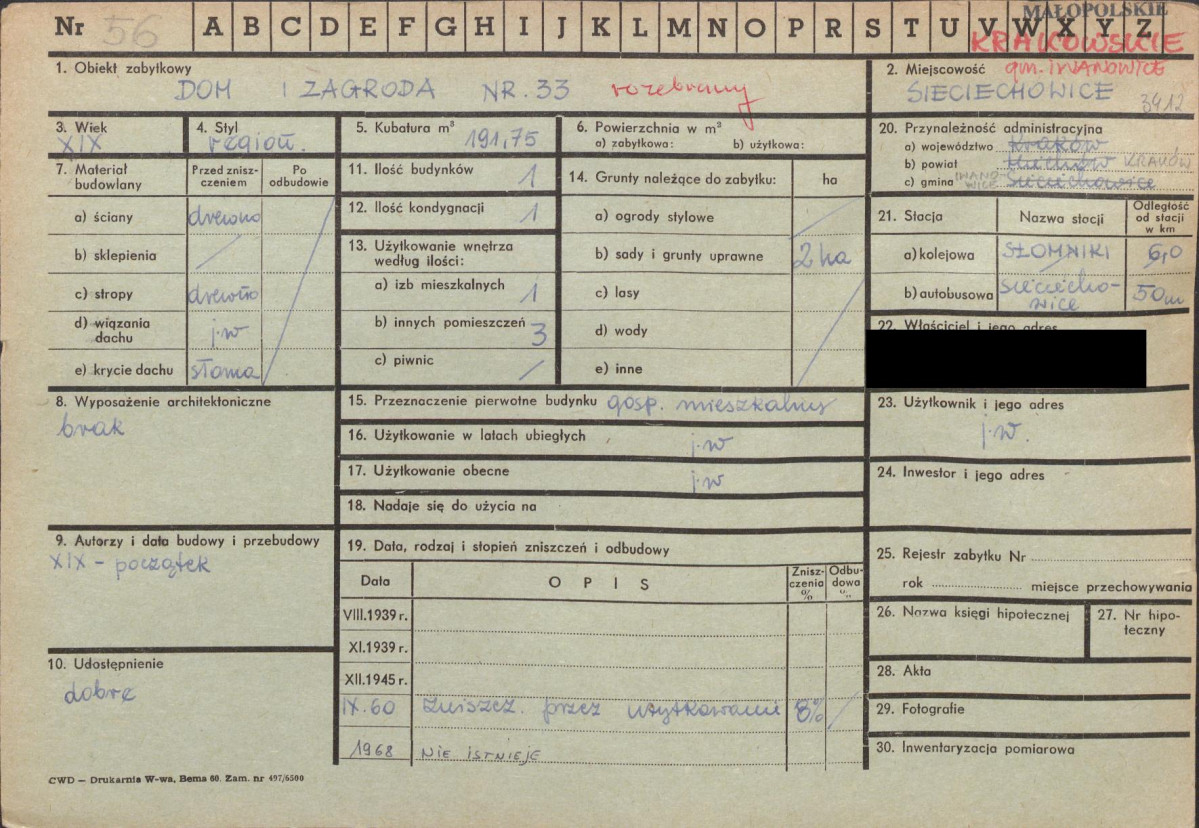 Nr 56 A B C D E F G H I J K L M N O P R S T U V W X Y Z
MAŁOPOLSKIE
KRAKOWSKIE
1. Obiekt zabytkowy
DOM I ZAGRODA NR. 33 rozebrany
2. Miejscowość gm. IWANOWICE
SIECIECHOWICE 3412
3. Wiek
XIX
4. Styl
region.
5. Kubatura m³
191,75
6. Powierzchnia w m²
a) zabytkowa: b) użytkowa:
20. Przynależność administracyjna
a) województwo Kraków
b) powiat Miechów KRAKÓW
c) gmina IWANO-
WICE Sieciechowice
7. Materiał
budowlany
Przed znisz-
czeniem
Po
odbudowie
a) ściany drewno
b) sklepienia
c) stropy drewno
d) wiązania
dachu j.w
e) krycie dachu słoma
11. Ilość budynków 1
12. Ilość kondygnacji 1
13. Użytkowanie wnętrza
według ilości:
a) izb mieszkalnych 1
b) innych pomieszczeń 3
c) piwnic
14. Grunty należące do zabytku: ha
a) ogrody stylowe
b) sady i grunty uprawne 2 ha
c) lasy
d) wody
e) inne
21. Stacja Nazwa stacji
Odległość
od stacji
w km
a) kolejowa SŁOMNIKI 6,0
b) autobusowa Sieciecho-
wice 50m
22. Właściciel i jego adres
8. Wyposażenie architektoniczne
brak
15. Przeznaczenie pierwotne budynku gosp. mieszkalny
16. Użytkowanie w latach ubiegłych j.w
17. Użytkowanie obecne j.w
18. Nadaje się do użycia na
23. Użytkownik i jego adres
j.w.
24. Inwestor i jego adres
9. Autorzy i data budowy i przebudowy
XIX - początek
10. Udostępnienie
dobre
19. Data, rodzaj i stopień zniszczeń i odbudowy
Data OPIS
Znisz-
czenia
%
Odbu-
dowa
%
VIII.1939 r.
XI.1939 r.
XII.1945 r.
IX.60 Zniszcz. przez użytkowanie 8%
1968 NIE ISTNIEJE
25. Rejestr zabytku Nr
rok miejsce przechowywania
26. Nazwa księgi hipotecznej
27. Nr hipo-
teczny
28. Akta
29. Fotografie
30. Inwentaryzacja pomiarowa
CWD — Drukarnia W-wa, Bema 60. Zam. nr 497/6500